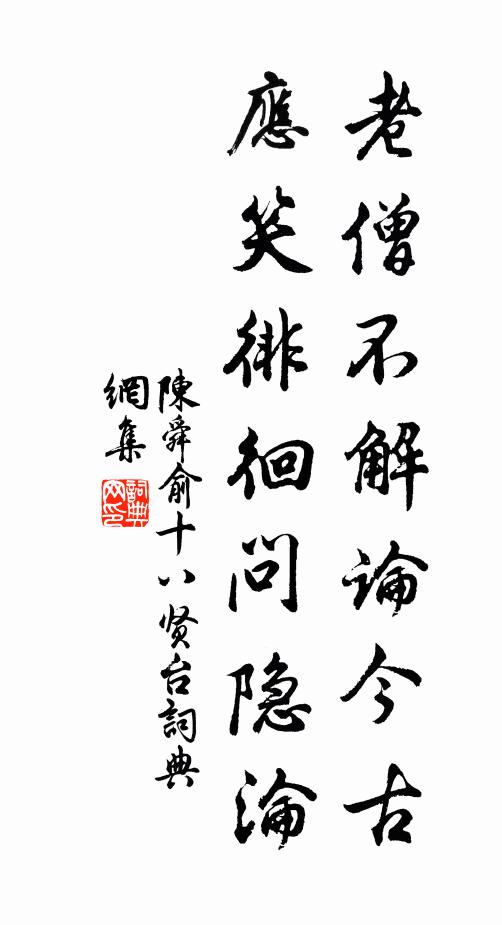 老僧不解論今古
應笑徘徊問隐淪
陳舜俞十八贤台詞典
網集
詞典
网印